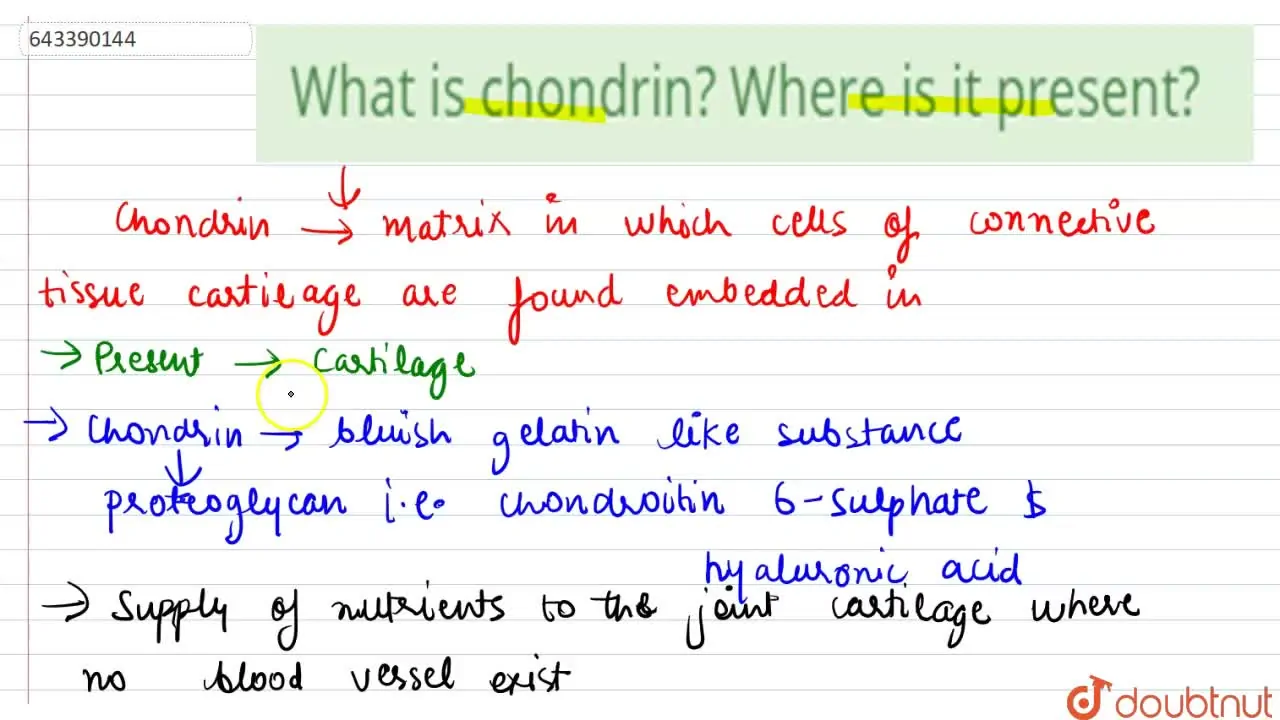 643390144
What is chondrin? Where is it present?
Chondrin → matrix in which cells of connective
tissue cartilage are found embedded in
→ Present → Cartilage
→ Chondrin → bluish gelatin like substance
proteoglycan i.e. chondroitin 6-sulphate &
hyaluronic acid
→ Supply of nutrients to the joint cartilage where
no blood vessel exist
doubtnut